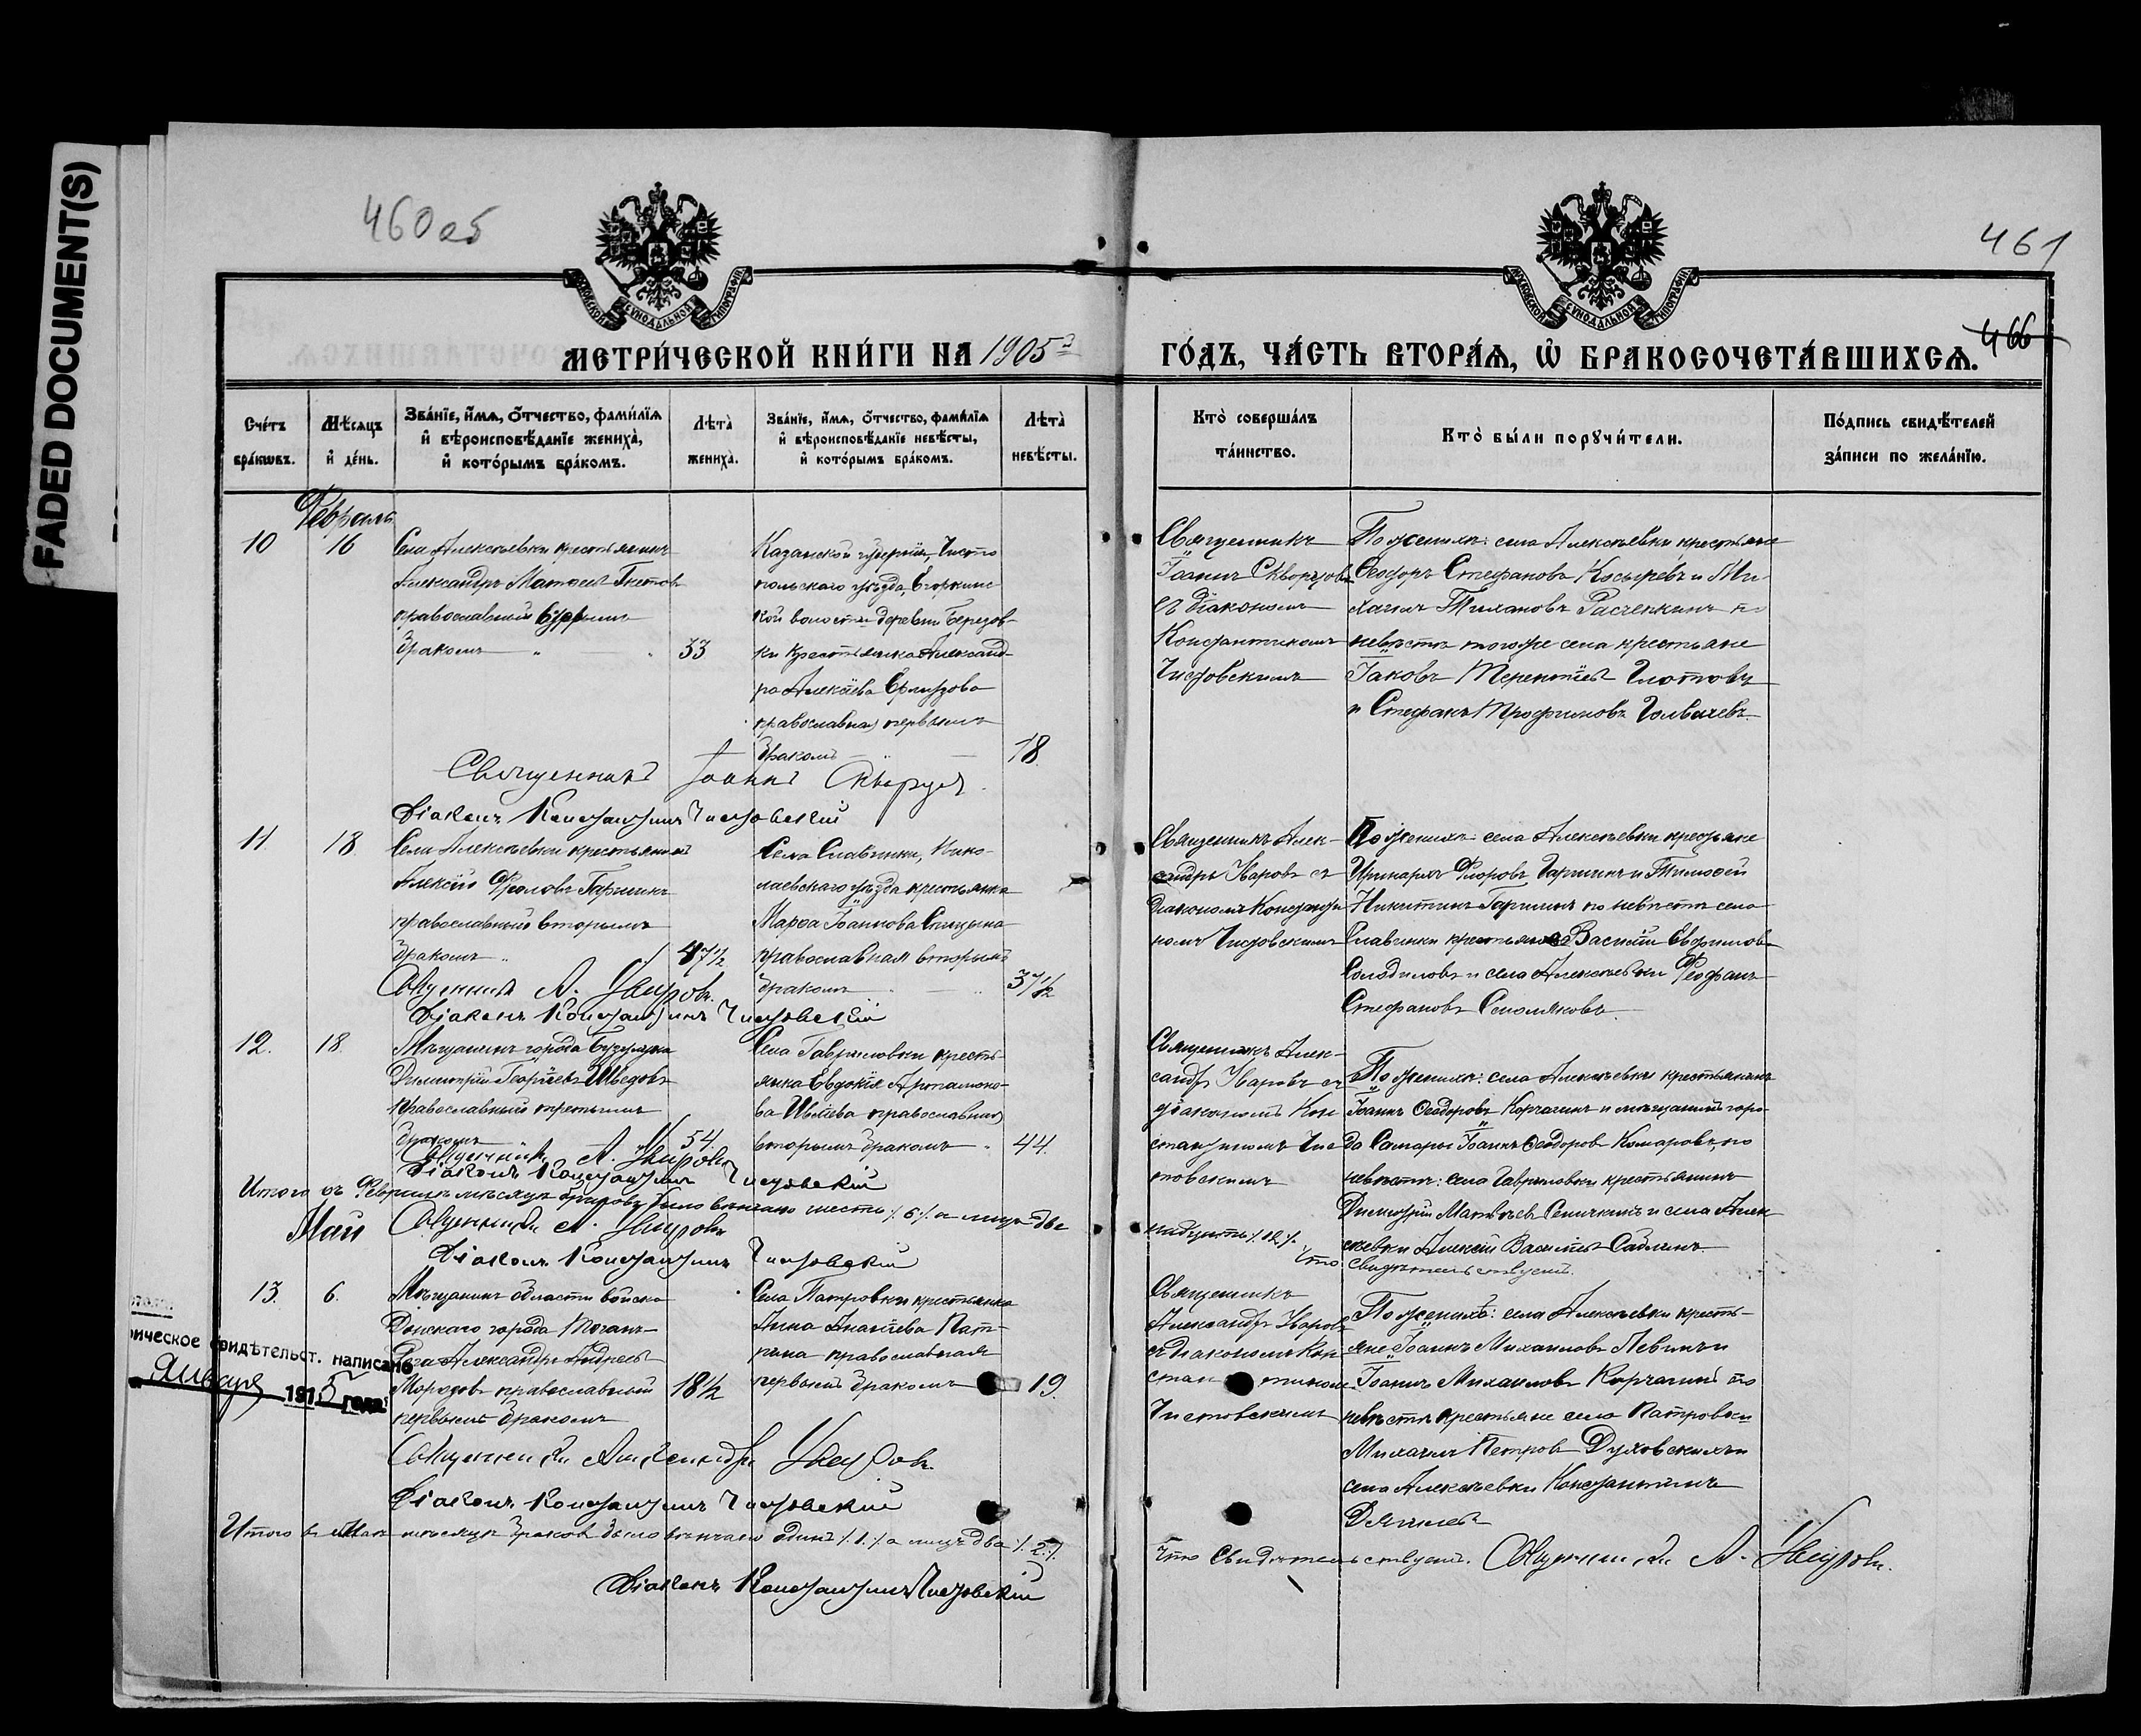 FADED DOCUMENT(S)
460 об
461
466
МОСКОВСКОЙ СУНОДАЛЬНОЙ ТИПОГРАФІИ
МОСКОВСКОЙ СУНОДАЛЬНОЙ ТИПОГРАФІИ
МЕТРИ́ЧЕСКОЙ КНИ́ГИ НА 1905 г
ГО́ДЪ, ЧА́СТЬ ВТОРА́Ѧ, Ѽ БРАКОСОЧЕТА́ВШИХСѦ.
Сче́тъ бра́кѡвъ.
Мѣ́сяцъ и҆ де́нь.
Зва́нїе, и҆́мѧ, ѻ҆́тчество, фами́лїѧ и҆ вѣроисповѣ́данїе жениха̀, и҆ кото́рымъ бра́комъ.
Лѣта̀ жениха̀.
Зва́нїе, и҆́мѧ, ѻ҆́тчество, фами́лїѧ и҆ вѣроисповѣ́данїе невѣ́сты, и҆ кото́рымъ бра́комъ.
Лѣта̀ невѣ́сты.
Кто̀ соверша́лъ та́инство.
Кто̀ бы́ли порꙋчи́тели.
По́дпись свидѣ́телей за́писи по жела́нїю.
Февраль
10
16
Села Алексѣевки крестьянинъ
Александръ Матѳеевъ
православный вторымъ
бракомъ
33
Казанской губерніи, Чисто
польскаго уѣзда, Егоркинс
кой волости деревни Березов-
ки крестьянка Александ-
ра Алексѣева
православная первымъ
бракомъ
18
Священникъ
Іоаннъ Скворцовъ
съ діакономъ
Константиномъ
Чистовскимъ
По женихѣ: села Алексѣевки крестьяне
Ѳеодоръ Стефановъ Косыревъ и Ми-
хаилъ Тихановъ Расчепкинъ по
невѣстѣ того же села крестьяне
Іаковъ Терентіевъ Глотовъ
и Стефанъ Трофимовъ Голвачевъ
Священникъ Іоаннъ Скворцовъ
Діаконъ Константинъ Чистовскій
11
18
Села Алексѣевки крестьянинъ
Алексій Фроловъ Гаршинъ
православный вторымъ
бракомъ
47 1/2
Села Славинки, Нико-
лаевскаго уѣзда крестьянка
Марѳа Іоаннова Спицына
православная вторымъ
бракомъ
37 1/2
Священникъ Алек-
сандръ Уваровъ съ
діакономъ Константи
номъ Чистовскимъ
По женихѣ: села Алексѣевки крестьяне
Иринархъ Флоровъ Гаршинъ и Тимоѳей
Никитинъ Гаршинъ по невѣстѣ села
Славинки крестьянинъ Василій Евфимовъ
Солодиловъ и села Алексѣевки Ѳеофанъ
Стефановъ Смоляковъ
Священникъ А. Уваровъ.
Діаконъ Константинъ Чистовскій
12.
18.
Мѣщанинъ города Бузулука
Димитрій Георгіевъ Шведовъ
православный третьимъ
бракомъ
54.
Села Гавриловки кресть-
янка Евдокія Артамоно-
ва Ивлева православная
вторымъ бракомъ
44.
Священникъ Алек-
сандръ Уваровъ съ
діакономъ Кон
стантиномъ Чис
товскимъ
По женихѣ: села Алексѣевки крестьянинъ
Іоаннъ Ѳеодоровъ Корчагинъ и мѣщанинъ горо-
да Самары Іоаннъ Ѳеодоровъ Комаровъ, по
невѣстѣ: села Гавриловки крестьянинъ
Димитрій Матвѣевъ и села Алек
сѣевки Алексій Василіевъ
Священникъ А. Уваровъ
Діаконъ Константинъ Чистовскій
Итого въ Февралѣ мѣсяцѣ браковъ было вѣнчано шесть /.6./ а лицъ две
надцать /.12./. Что свидѣтельствуемъ.
Священникъ А. Уваровъ
Діаконъ Константинъ Чистовскій
Май
13.
6.
Мѣщанинъ области войска
Донскаго города Таган-
рога Александръ Андреевъ
Морозовъ православный
первымъ бракомъ
18 1/2
Села Патровки крестьянка
Анна Ананіева Пат-
рина православная
первымъ бракомъ
19.
Священникъ
Александръ Уваровъ
съ діакономъ Кон
стантиномъ
Чистовскимъ
По женихѣ: села Алексѣевки кресть-
яне Іоаннъ Михаиловъ Левинъ и
Іоаннъ Михаиловъ Корчагинъ по
невѣстѣ крестьяне села Патровки
Михаилъ Петровъ Духовскихъ и
села Алексѣевки Константинъ
Священникъ Александръ Уваровъ.
Діаконъ Константинъ Чистовскій
Итого въ Маѣ мѣсяцѣ браковъ было вѣнчано одинъ /.1./ а лицъ два /.2./
Что свидѣтельствуемъ. Священникъ А. Уваровъ.
Діаконъ Константинъ Чистовскій
рическое свидѣтельст. написано
Января 1915 года